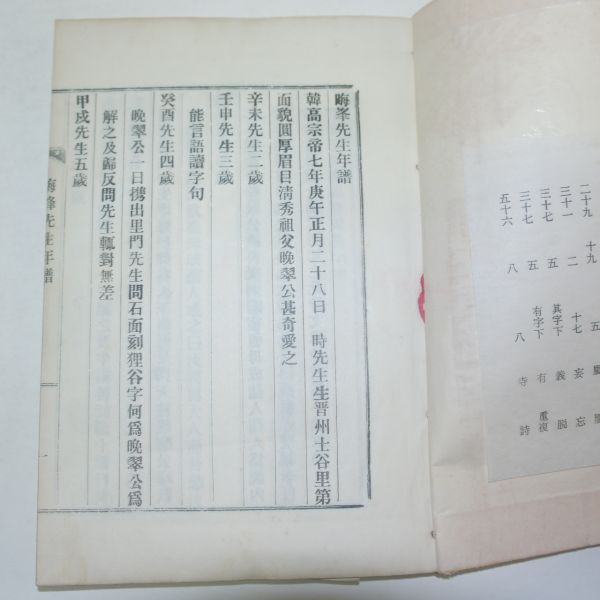 二十九 十九 五
三十一 二 十七 妄 忘
三十七 五 其字下 義
三十七 五 有字下 有 重複
五十六 八 八 寺 詩
晦峯先生年譜
韓高宗帝七年庚午正月二十八日 時先生生晋州士谷里第
面貌圓厚眉目清秀祖父晚翠公甚奇愛之
辛未先生二歲
壬申先生三歲
能言語讀字句
癸酉先生四歲
晚翠公一日携出里門先生問石面刻狸谷字何爲晚翠公爲
解之及歸反問先生輒對無差
甲戌先生五歲
晦峰先生年譜
一